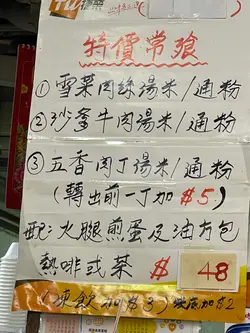 特價常飱
① 雪菜肉絲湯米/通粉
② 沙爹牛肉湯米/通粉
③ 五香肉丁湯米/通粉
(轉出前一丁加$5)
配:火腿煎蛋及油方包
熱啡或茶 $ 48
(凍飲加$3)
加$2